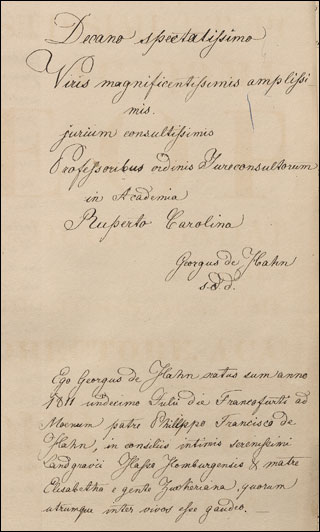 Decano spectatissimo
Viris magnificentissimis amplissi
mis.
jurium consultissimis
Professoribus ordinis Jureconsultorum
in Academia
Ruperto Carolina
Georgus de Hahn
s.d.d.
Ego Georgus de Hahn natus sum anno
1811 undecimo Julii die Francofurti ad
Moenum patre Philippo Francisco de
Hahn, in consiliis intimis serenissimi
Landgravii Hasso Homburgensis & matre
Elisabetha e gente quorum
utrumque inter vivos esse gaudeo. —